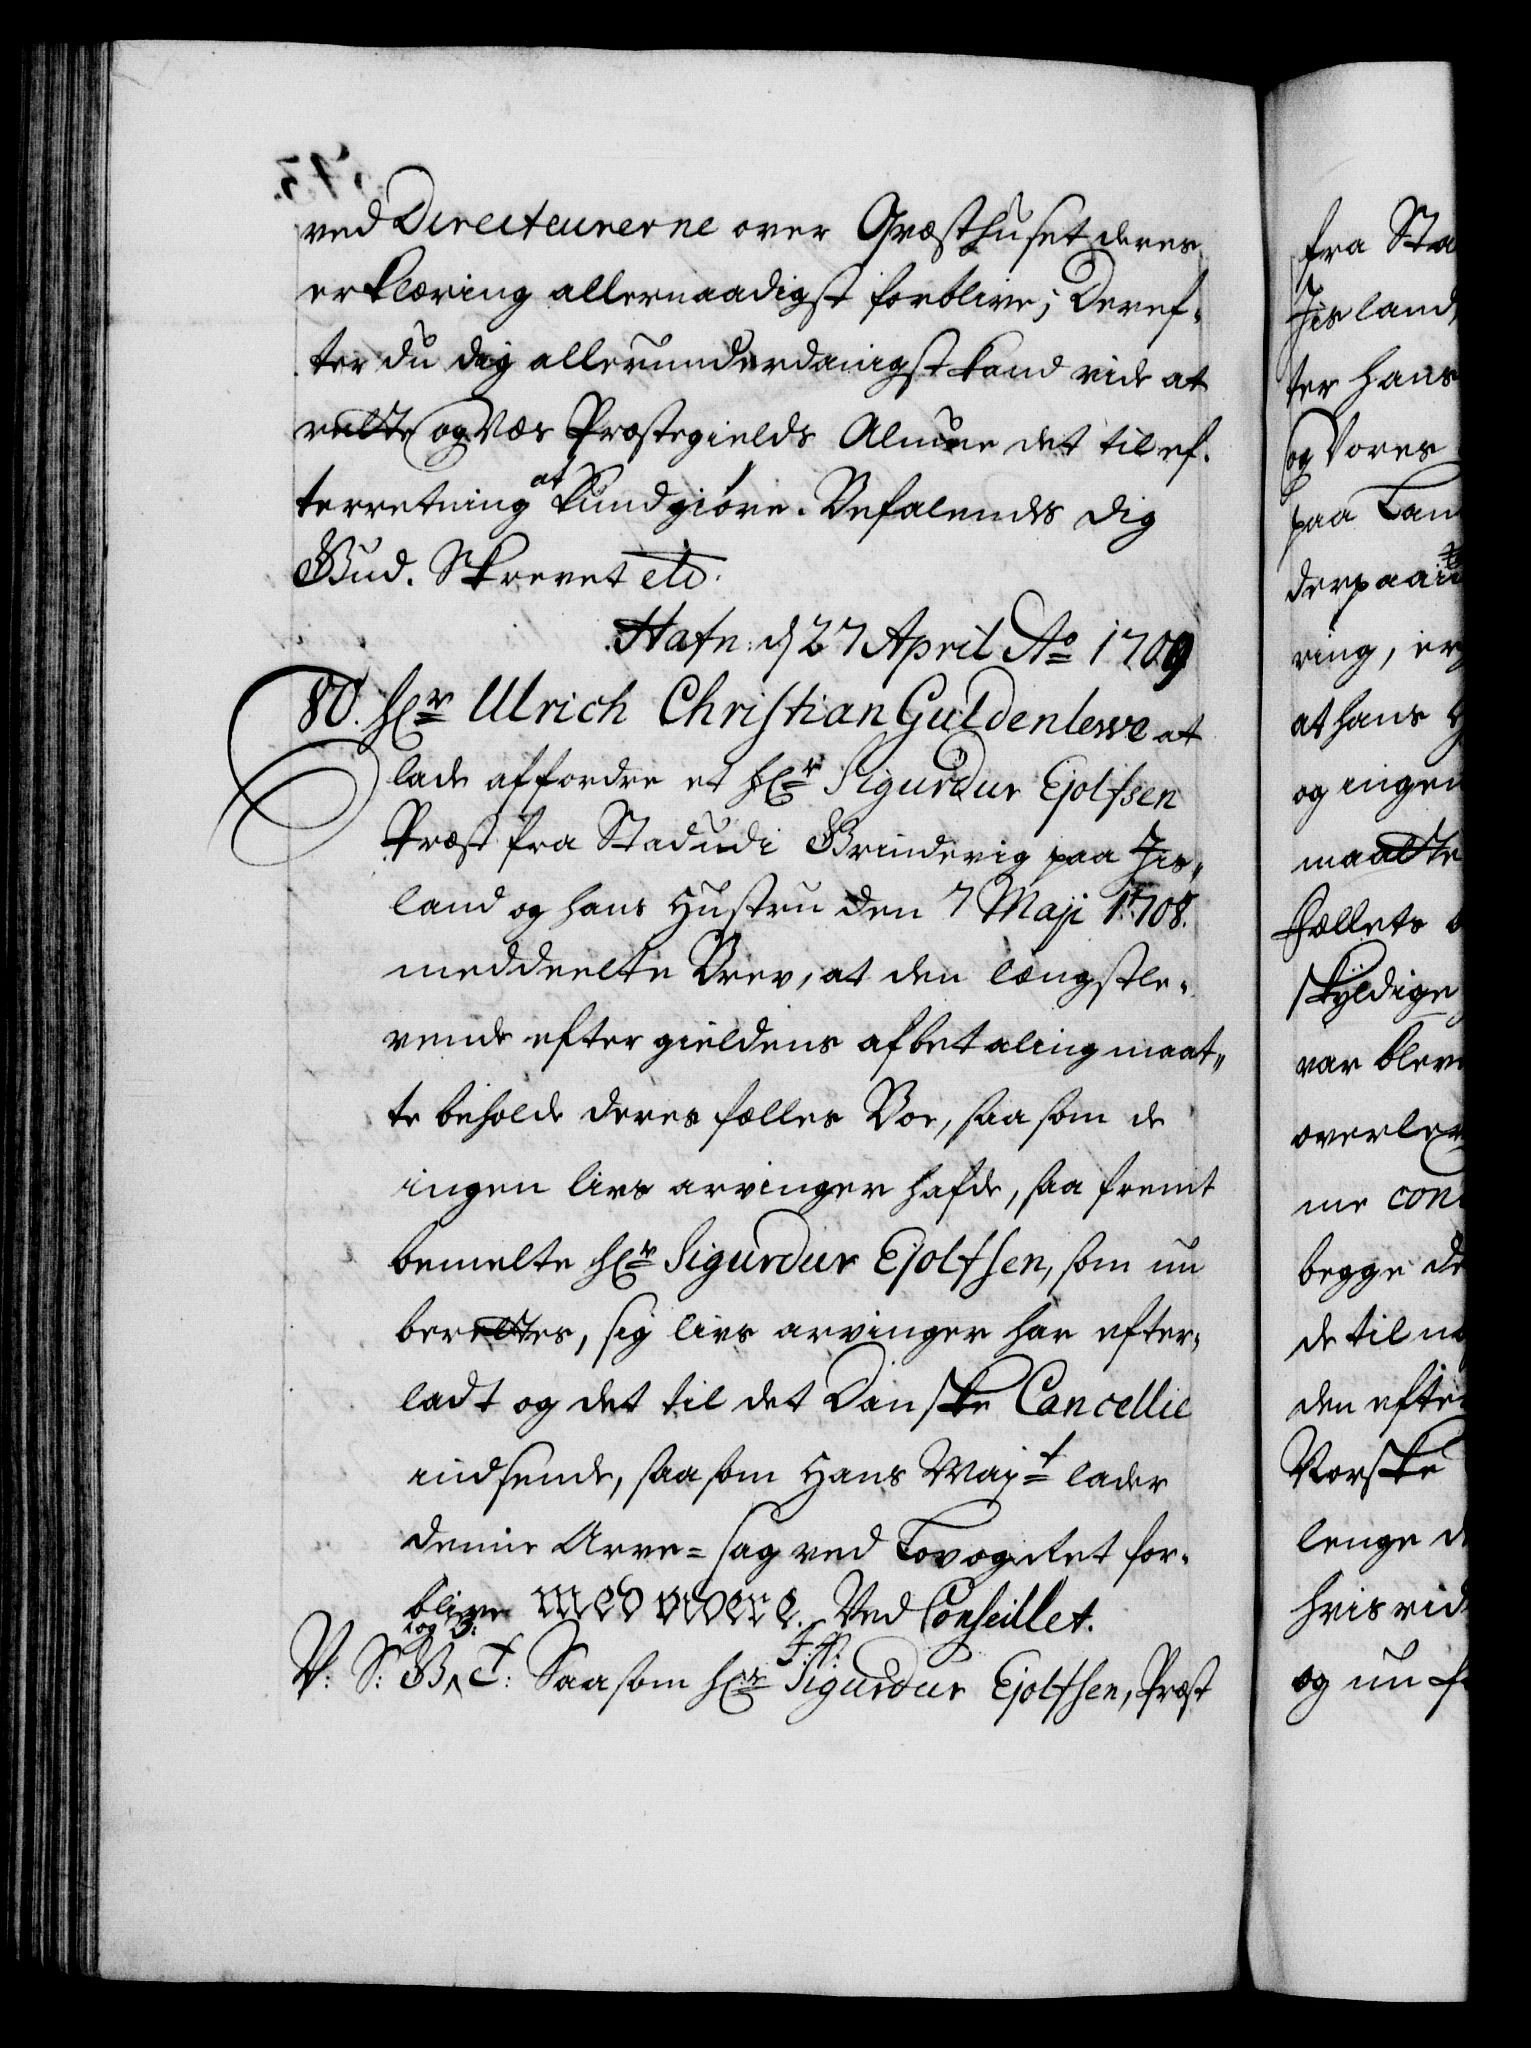 ved Directeurerne over Græsthuset deres
erklæring allernaadigst forblive; Deref-
ter du dig allerunderdanigst kand vide at
rette og Væs Præstegields Almue det til ef-
terretning at kundgiøre. Befalendes dig
Gud. Skrevet etc.
Hafn: d 27 April Ao 1709
80. Hr Ulrich Christian Guldenlewe at
lade affordre et Hr Sigurdur Ejolfsen
Præst fra Stadudi Grindevig paa Jis-
land og hans Hustru den 7 Maji 1708.
meddeelte Brev, at den længstle-
vende efter gieldens afbetaling maat-
te beholde deres fælles Boe, saasom de
ingen livs arvinger hafde, saa fremt
bemelte Hr Sigurdur Ejolfsen, som nu
berettes, sig livs arvinger har efter-
ladt og det til det Danske Cancellie
indsende, saasom Hans Mayt lader
denne Arve-sag ved Lov og Ret for-
blive med videre. Ved Conseillet.
V: S: G og B: T: Saasom Hr Sigurdur Ejolfsen, Præst
fra Sta
Jisland,
ter hans
og Vores
paa Lan
derpaa
ring, er
at hans
og ingen
maatte
fælles
skyldige
var blev
overlev
me con
begge de
de til
den efter
Norske
lenge d
hvis vid
og nu